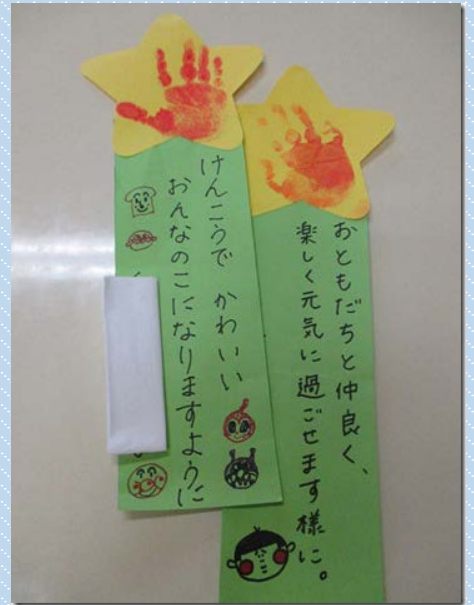 おともだちと仲良く、
楽しく元気に過ごせます様に。
けんこうで かわいい
おんなのこになりますように